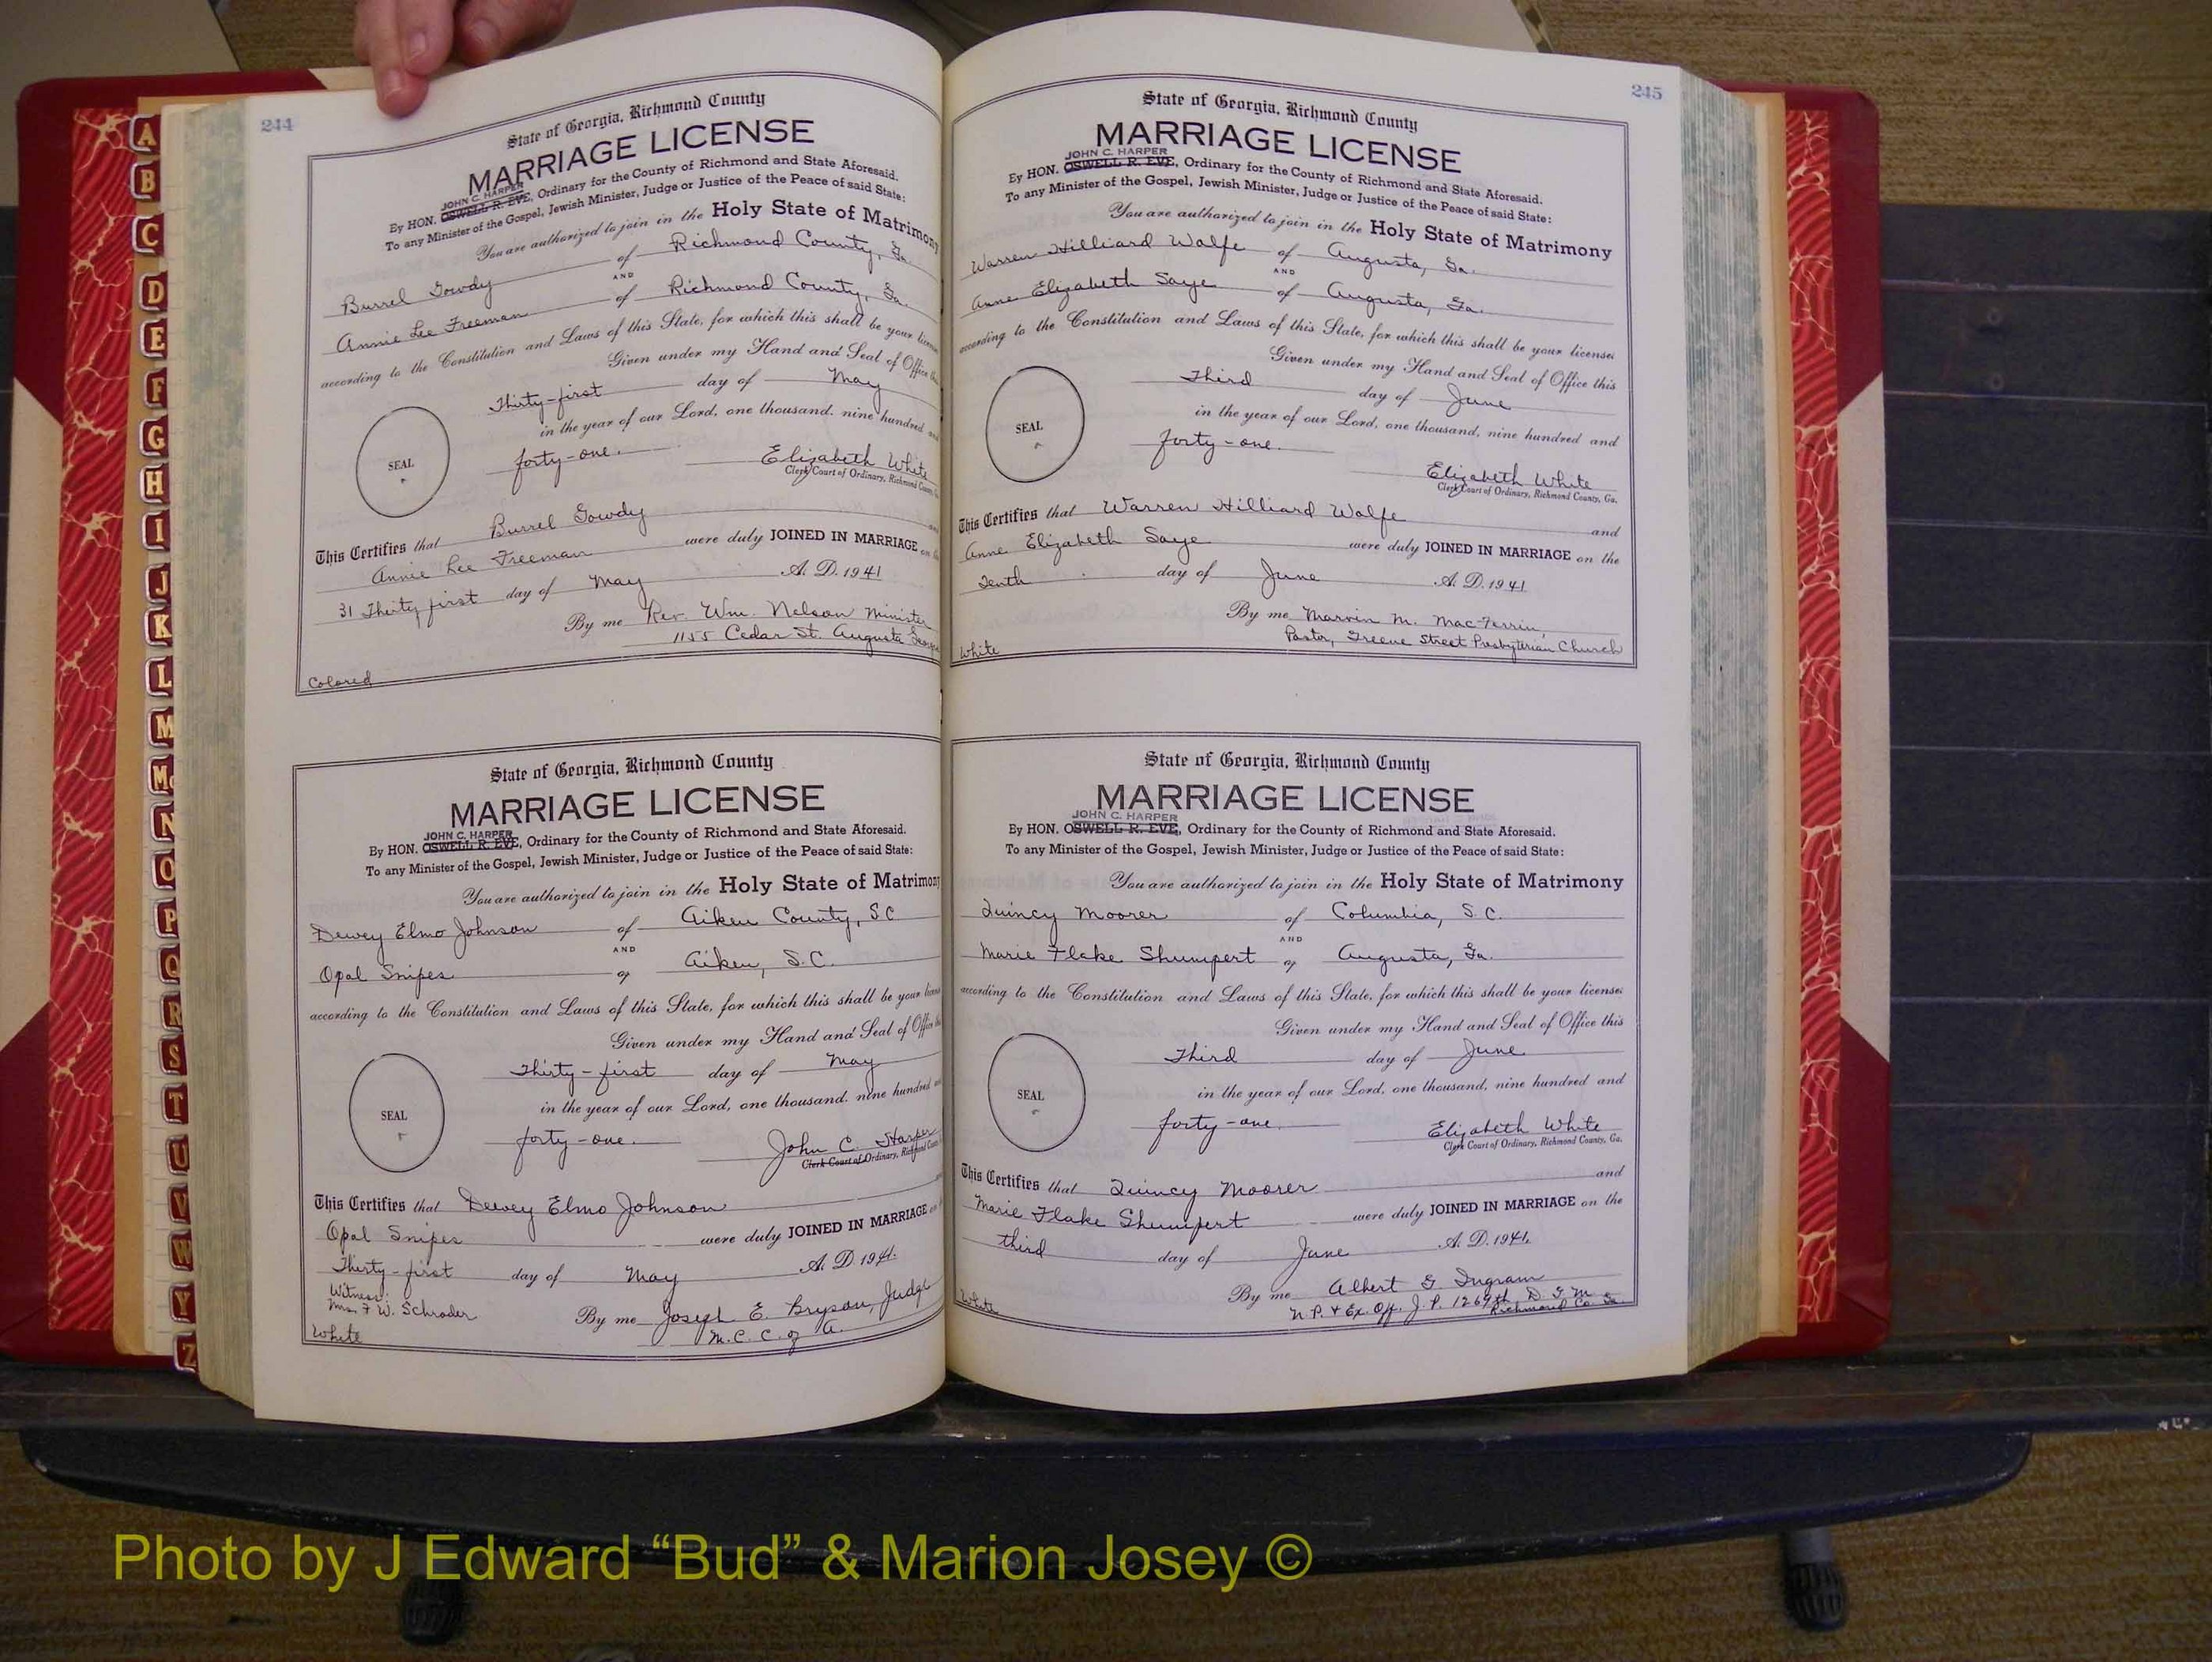 244
State of Georgia, Richmond County
MARRIAGE LICENSE
JOHN C. HARPER
By HON. OSWELL R. EVE, Ordinary for the County of Richmond and State Aforesaid.
To any Minister of the Gospel, Jewish Minister, Judge or Justice of the Peace of said State:
You are authorized to join in the Holy State of Matrimony
Burrel Gowdy of Richmond County, Ga.
AND
Annie Lee Freeman of Richmond County, Ga.
according to the Constitution and Laws of this State, for which this shall be your license
Given under my Hand and Seal of Office this
Thirty-first day of May
in the year of our Lord, one thousand, nine hundred and
SEAL
forty-one.
Elizabeth White
Clerk Court of Ordinary, Richmond County, Ga.
This Certifies that Burrel Gowdy and
Annie Lee Freeman were duly JOINED IN MARRIAGE on the
31 Thirty first day of May A. D. 1941
By me Rev. Wm. Nelson Minister
1155 Cedar St. Augusta Georgia
Colored
State of Georgia, Richmond County
MARRIAGE LICENSE
JOHN C. HARPER
By HON. OSWELL R. EVE, Ordinary for the County of Richmond and State Aforesaid.
To any Minister of the Gospel, Jewish Minister, Judge or Justice of the Peace of said State:
You are authorized to join in the Holy State of Matrimony
Dewey Elmo Johnson of Aiken County, S.C.
AND
Opal Snipes of Aiken, S.C.
according to the Constitution and Laws of this State, for which this shall be your license
Given under my Hand and Seal of Office this
Thirty-first day of May
in the year of our Lord, one thousand, nine hundred and
SEAL
forty-one.
John C. Harper
Clerk Court of Ordinary, Richmond County
This Certifies that Dewey Elmo Johnson
Opal Snipes were duly JOINED IN MARRIAGE on
Thirty-first day of May A. D. 1941.
Witness:
Mrs. F. W. Schrader
By me Joseph E. Bryson, Judge
M. C. C. of A.
White
245
State of Georgia, Richmond County
MARRIAGE LICENSE
JOHN C. HARPER
By HON. OSWELL R. EVE, Ordinary for the County of Richmond and State Aforesaid.
To any Minister of the Gospel, Jewish Minister, Judge or Justice of the Peace of said State:
You are authorized to join in the Holy State of Matrimony
Warren Hilliard Wolfe of Augusta, Ga.
AND
Anne Elizabeth Saye of Augusta, Ga.
according to the Constitution and Laws of this State, for which this shall be your license
Given under my Hand and Seal of Office this
Third day of June
in the year of our Lord, one thousand, nine hundred and
SEAL
forty-one.
Elizabeth White
Clerk Court of Ordinary, Richmond County, Ga.
This Certifies that Warren Hilliard Wolfe and
Anne Elizabeth Saye were duly JOINED IN MARRIAGE on the
Tenth day of June A. D. 1941
By me Marvin M. MacFerrin,
Pastor, Greene Street Presbyterian Church
White
State of Georgia, Richmond County
MARRIAGE LICENSE
JOHN C. HARPER
By HON. OSWELL R. EVE, Ordinary for the County of Richmond and State Aforesaid.
To any Minister of the Gospel, Jewish Minister, Judge or Justice of the Peace of said State:
You are authorized to join in the Holy State of Matrimony
Quincy Moorer of Columbia, S.C.
AND
Marie Flake Shumpert of Augusta, Ga.
according to the Constitution and Laws of this State, for which this shall be your license
Given under my Hand and Seal of Office this
Third day of June
in the year of our Lord, one thousand, nine hundred and
SEAL
forty-one.
Elizabeth White
Clerk Court of Ordinary, Richmond County, Ga.
This Certifies that Quincy Moorer and
Marie Flake Shumpert were duly JOINED IN MARRIAGE on the
third day of June A. D. 1941.
By me Albert G Ingram
N. P. & Ex. Off. J. P. 1269th D. G. M.
Richmond Co. Ga.
White
A
B
C
D
E
F
G
H
I
J
K
L
M
Mc
N
O
P
Q
R
S
T
U
V
W
Y
Z
Photo by J Edward “Bud” & Marion Josey ©